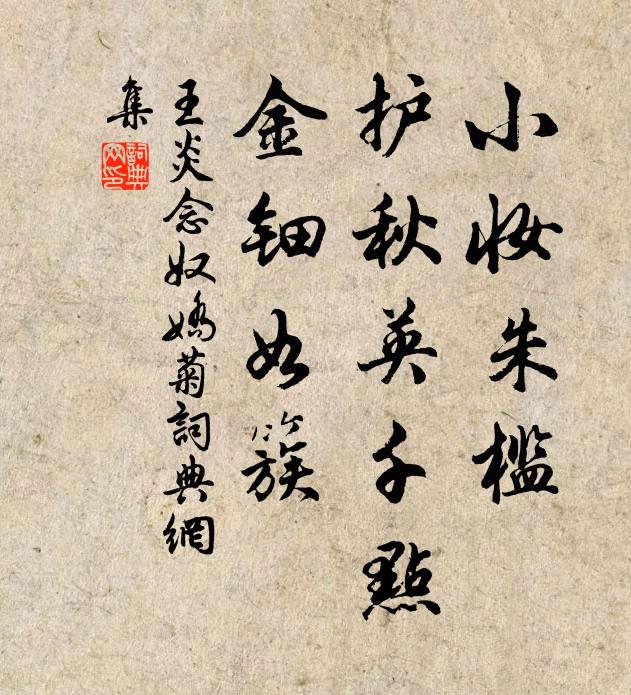 小妆朱槛
护秋英千點
金钿如簇
王炎念奴嬌菊詞典網
集
詞典
网印